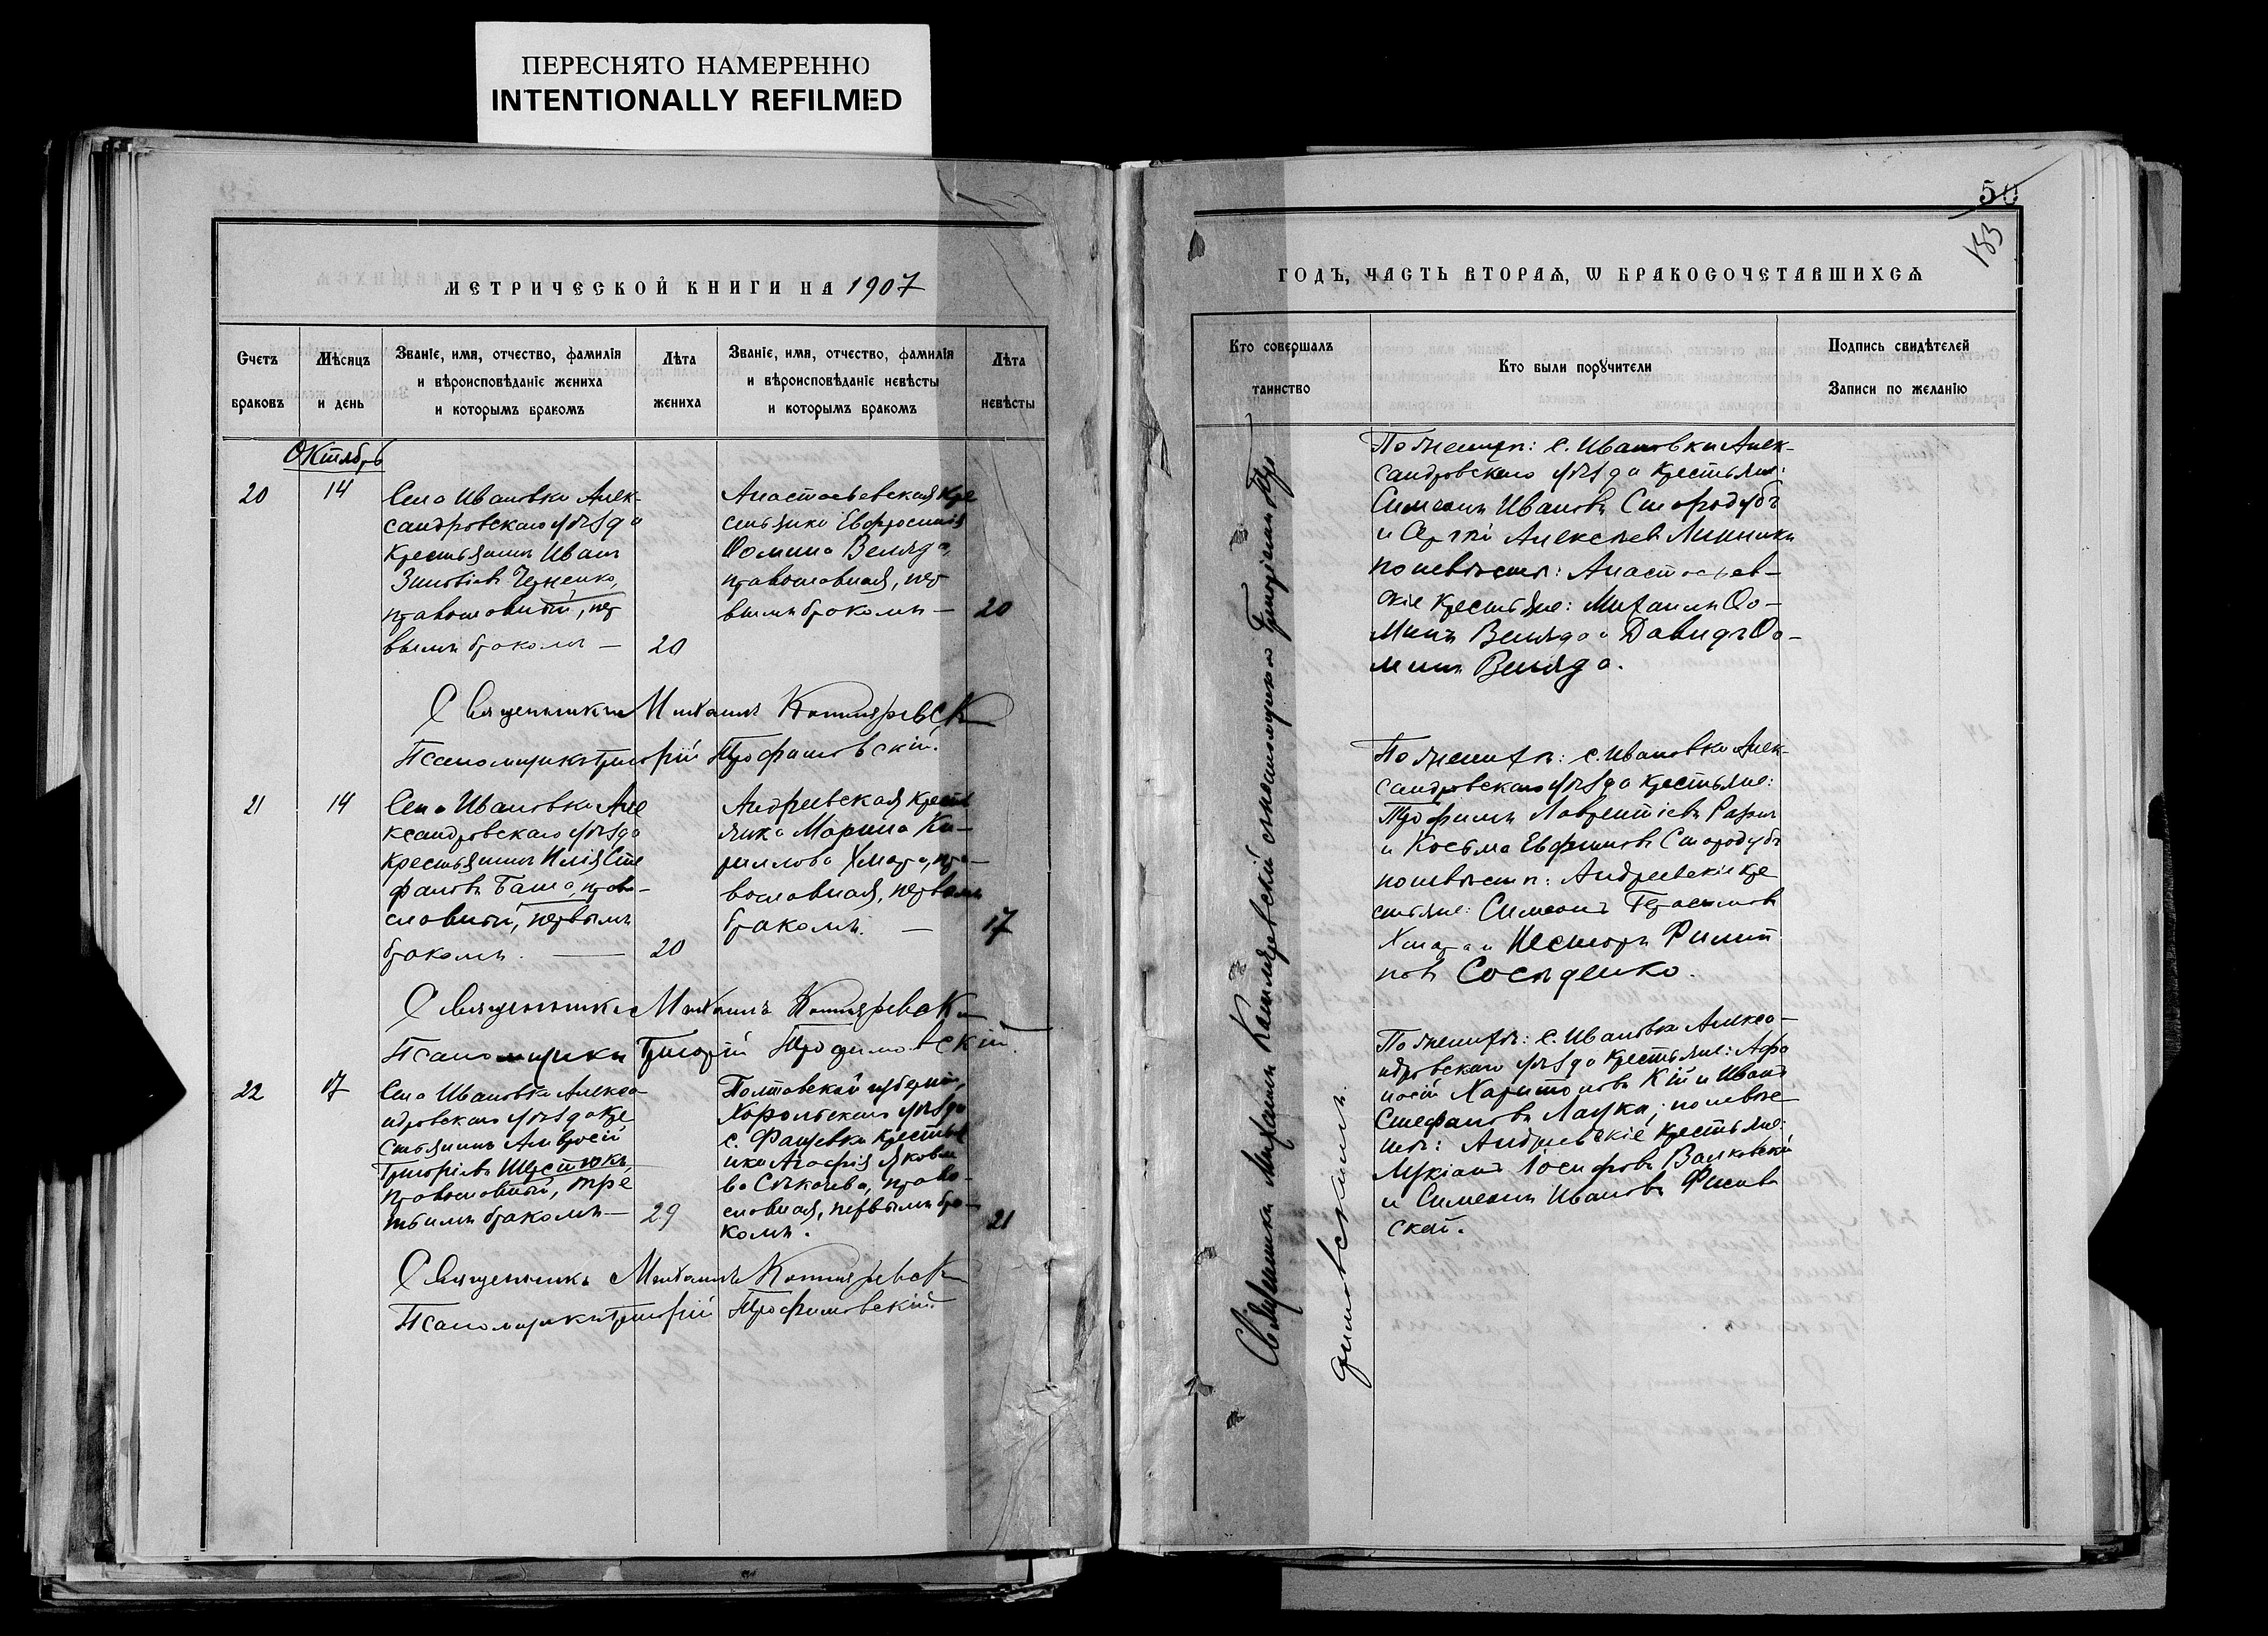 ПЕРЕСНЯТО НАМЕРЕННО
INTENTIONALLY REFILMED
МЕТРИЧЕСКОЙ КНИГИ НА 1907
Счетъ
браковъ
Мѣсяцъ
и день
Званіе, имя, отчество, фамилія
и вѣроисповѣданіе жениха
и которымъ бракомъ
Лѣта
жениха
Званіе, имя, отчество, фамилія
и вѣроисповѣданіе невѣсты
и которымъ бракомъ
Лѣта
невѣсты
Октябрь
20
14
Села Ивановки Алек-
сандровскаго уѣзда
крестьянинъ Иванъ
Зиновіевъ Черненко,
православный, пер
вымъ бракомъ —
20
Анастасьевская кре
стьянка Евфросинія
Ѳомина Веляда,
православная, пер
вымъ бракомъ —
20
Священникъ Михаилъ Котляревск
Псаломщикъ Григорій Трофимовскій.
21
14
Села Ивановки Але
ксандровскаго уѣзда
крестьянинъ Илія Сте
фановъ Баша, право-
славный, первымъ
бракомъ. —
20
Андреевская кресть
янка Марина Ки-
риллова Хмара, пра-
вославная, первымъ
бракомъ. —
17
Священникъ Михаилъ Котляревск
Псаломщикъ Григорій Трофимовскій
22
17
Села Ивановки Алекса-
ндровскаго уѣзда кре
стьянинъ Амвросій
Григоріевъ Шерстюкъ,
православный, тре
тьимъ бракомъ —
29
Полтавской губерніи,
Хорольскаго уѣзда
с. Фащевки крестья
нка Агафія Яковле
ва Сѣкачева, право-
славная, первымъ бра-
комъ.
21
Священникъ Михаилъ Котляревск
Псаломщикъ Григорій Трофимовскій
50
133
ГОДЪ, ЧАСТЬ ВТОРАЯ, Ѡ БРАКОСОЧЕТАВШИХСЯ
Кто совершалъ
таинство
Кто были поручители
Подпись свидѣтелей
Записи по желанію
Священникъ Михаилъ Котляревскій съ псаломщикомъ Григоріемъ Тро
фимовскимъ.
По женихѣ: с. Ивановки Алек-
сандровскаго уѣзда крестьяне:
Симеонъ Ивановъ Стародубъ
и Сергій Алексѣевъ Линникъ
по невѣстѣ: Анастасьев-
скіе крестьяне: Михаилъ Ѳо-
минъ Веляда и Давидъ Ѳо-
минъ Веляда.
По женихѣ: с. Ивановки Алек-
сандровскаго уѣзда крестьяне:
Трофимъ Лаврентіевъ
и Косьма Евфимовъ Стародубъ
по невѣстѣ: Андреевскіе кре
стьяне: Симеонъ Герасимовъ
Хмара и Несторъ Филип
повъ Сосѣденко.
По женихѣ: с. Ивановки Алекса-
ндровскаго уѣзда крестьяне: Афа
насій Харитоновъ Кій и Иванъ
Стефановъ; по невѣс
тѣ: Андреевскіе крестьяне:
Лукіанъ Іосифовъ Валковскій
и Симеонъ Ивановъ
ской.